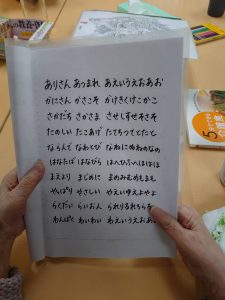 ありさん あつまれ あえいうえおあお
かにさん かさこそ かけきくけこかこ
さかだち さかさま させしすせそさそ
たのしい たこあげ たてちつてとたと
ならんで なわとび なねにぬねのなの
はなたば はなびら はへひふへほはほ
まえより まじめに まめみむめもまも
やっぱり やさしい やえいゆえよやよ
らくだい らいおん られりるれろらろ
わんぱく わいわい わえいうえおあお
5分